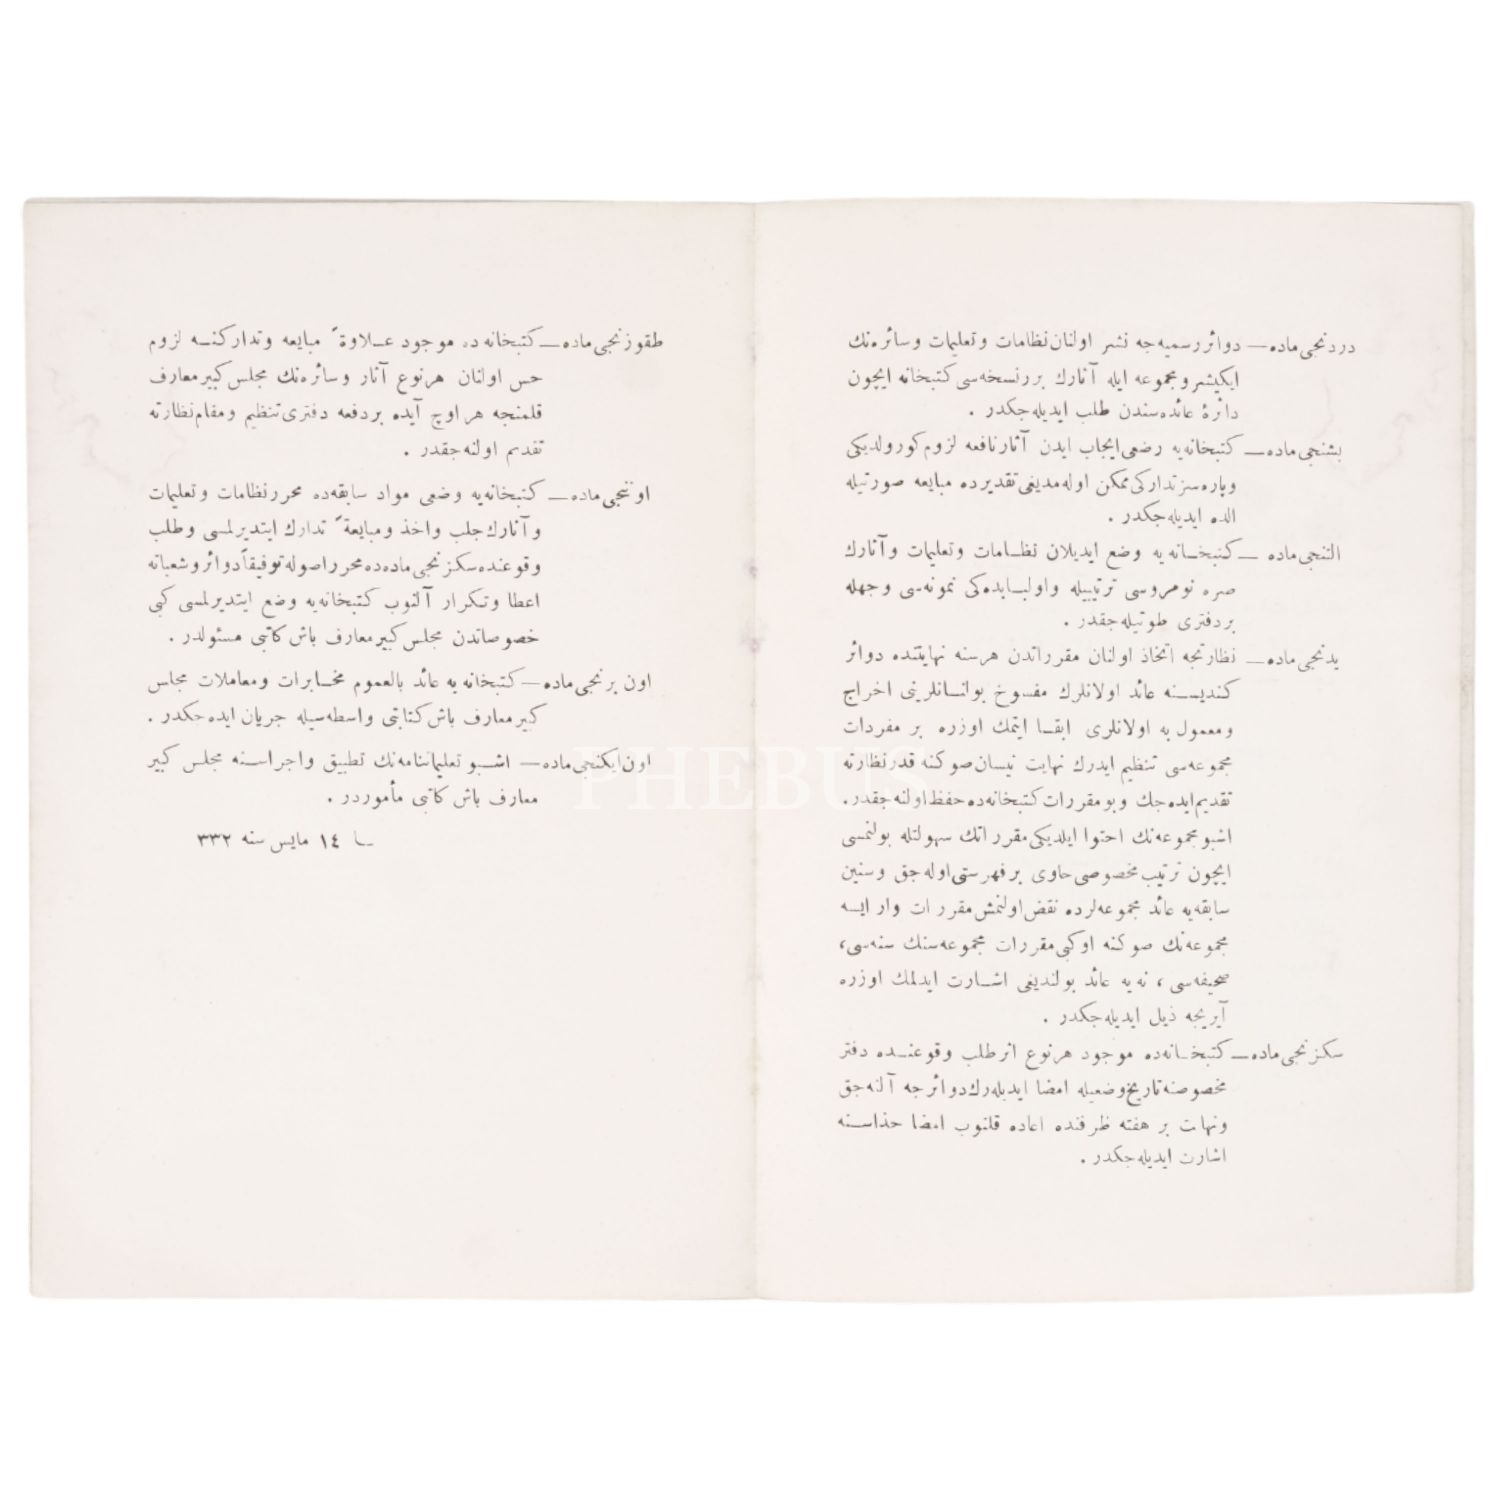 دردنجی ماده — دوائر رسمیه‌جه نشر اولنان نظامات و تعلیمات وسائره‌نك
ایکیشر و مجموعه ایله آثارك بررنسخه‌سی کتبخانه ایچون
دائرهٔ عائده‌سندن طلب ایدیله‌جکدر .
بشنجی ماده — کتبخانه‌یه رضعی ایجاب ایدن آثار نافعه لزوم کورولدیکی
وپاره‌سز تدارکی ممکن اوله‌مدیغی تقدیرده مبایعه صورتیله
الده ایدیله‌جکدر .
التنجی ماده — کتبخـانه‌یه وضع ایدیلان نظـامات وتعلیمات وآثارك
صره نومروسی ترتیبیله واولبـابده‌کی نمونه‌سی وجهله
بردفتری طوتیله‌جقدر .
یدنجی ماده — نظارتجه اتخاذ اولنان مقرراتدن هرسنه نهایتنده دوائر
کندیسنه عائد اولانلرك مفسوخ بولنـانلرینی اخراج
ومعمول به اولانلری ابقـا ایتمك اوزره بر مفردات
مجموعه‌سی تنظیم ایدرك نهایت نیسان صوکنه قدر نظارته
تقدیم ایده‌جك وبو مقررات کتبخانه‌ده حفظ اولنه‌جقدر.
اشبو مجموعه‌نك احتوا ایلدیکی مقرراتك سهولتله بولنمسی
ایچون ترتیب مخصوصی حاوی بر فهرستی اوله‌جق وسنین
سابقه‌یه عائد مجموعه‌لرده نقض اولنمش مقررات وار ایـسه
مجموعه‌نك صوکنه اوکبی مقررات مجموعه‌سنك سنه‌سی،
صحیفه‌سی ، نه‌یه عائد بولندیغی اشـارت ایدلمك اوزره
آیریجه ذیل ایدیله‌جکدر .
سکزنجی ماده — کتبخـانه‌ده موجود هرنوع اثر طلب وقوعنـده دفتر
مخصوصنه تاریخ وضعیله امضا ایدیله‌رك دوائرجه آلنه‌جق
ونهایت بر هفته ظرفنده اعاده قلنوب امضا حذاسـنه
اشارت ایدیله‌جکدر .
طقوزنجی ماده — کتبخانه‌ده موجود عـلاوةً مبایعه وتدارکنـه لزوم
حس اولنان هرنوع آثار وسائره‌نك مجلس کبیر معارف
قلمنجه هر اوچ آیده بردفعه دفتری تنظیم ومقام نظارته
تقدیم اولنه‌جقدر .
اوننجی ماده — کتبخانه‌یه وضعی مواد سابقه‌ده محرر نظامات وتعلیمات
وآثارك جلب واخذ ومبایعةً تدارك ایتدیرلمسی وطلب
وقوعنده سکزنجی ماده‌ده محرر اصوله توفیقاً دوائر وشعباته
اعطا وتکرار آلنوب کتبخانه‌یه وضع ایتدیرلمسی کبی
خصوصاتدن مجلس کبیر معارف باش کاتبی مسئولدر .
اون برنجی ماده — کتبخانه‌یه عائد بالعموم مخـابرات ومعاملات مجلس
کبیر معارف باش کتابتی واسطه‌سیله جریان ایده‌جکدر .
اون ایکنجی ماده — اشـبو تعلیماتنامه‌نك تطبیق واجراسـنه مجلس کبیر
معارف باش کاتبی مأموردر .
١٤ مایس سنه ٣٣٢
PHEBUS